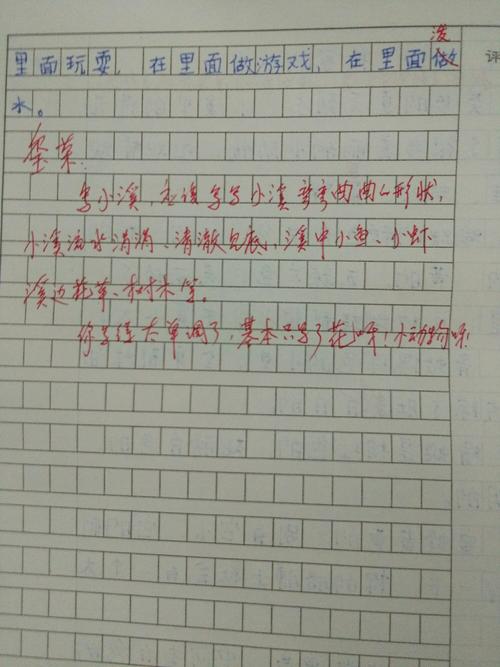 泼
里面玩耍，在里面做游戏，在里面做
水。
评
堃荣：
写小溪，应该写写小溪弯弯曲曲的形状，
小溪流水涓涓、清澈见底，溪中小鱼、小虾
溪边花草、树木等。
你写得太单调了，基本只写了花呀！小动物呀！